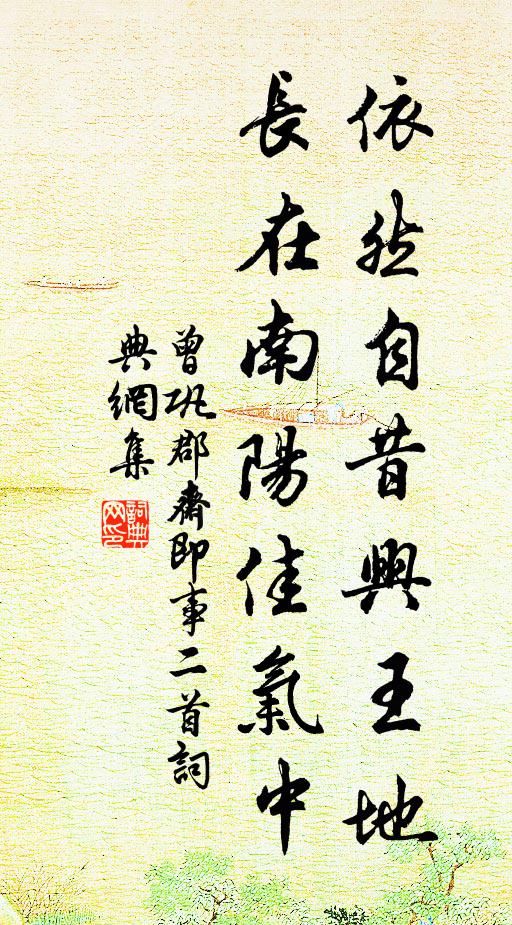 依然自昔興王地
長在南陽佳氣中
曾巩郡齋即事二首詞
典網集
詞典网印